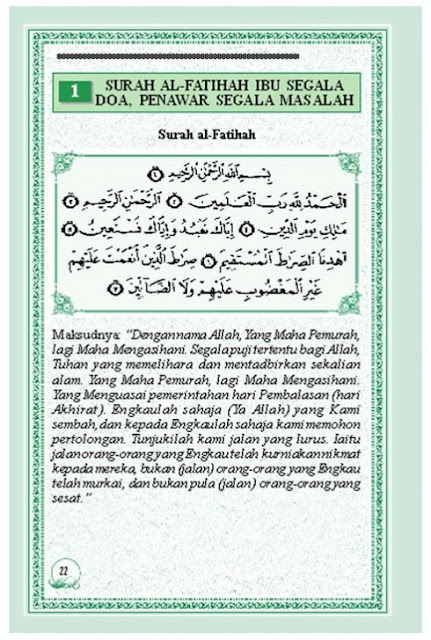 1
SURAH AL-FATIHAH IBU SEGALA
DOA, PENAWAR SEGALA MASALAH
Surah al-Fatihah
بِسْمِ ٱللَّهِ ٱلرَّحْمَٰنِ ٱلرَّحِيمِ ١
ٱلْحَمْدُ لِلَّهِ رَبِّ ٱلْعَٰلَمِينَ ٢ ٱلرَّحْمَٰنِ ٱلرَّحِيمِ ٣
مَٰلِكِ يَوْمِ ٱلدِّينِ ٤ إِيَّاكَ نَعْبُدُ وَإِيَّاكَ نَسْتَعِينُ ٥
ٱهْدِنَا ٱلصِّرَٰطَ ٱلْمُسْتَقِيمَ ٦ صِرَٰطَ ٱلَّذِينَ أَنْعَمْتَ عَلَيْهِمْ
غَيْرِ ٱلْمَغْضُوبِ عَلَيْهِمْ وَلَا ٱلضَّآلِّينَ ٧
Maksudnya: “Dengan nama Allah, Yang Maha Pemurah,
lagi Maha Mengasihani. Segala puji tertentu bagi Allah,
Tuhan yang memelihara dan mentadbirkan sekalian
alam. Yang Maha Pemurah, lagi Maha Mengasihani.
Yang Menguasai pemerintahan hari Pembalasan (hari
Akhirat). Engkaulah sahaja (Ya Allah) yang Kami
sembah, dan kepada Engkaulah sahaja kami memohon
pertolongan. Tunjukilah kami jalan yang lurus. Iaitu
jalan orang-orang yang Engkau telah kurniakan nikmat
kepada mereka, bukan (jalan) orang-orang yang Engkau
telah murkai, dan bukan pula (jalan) orang-orang yang
sesat.”
22